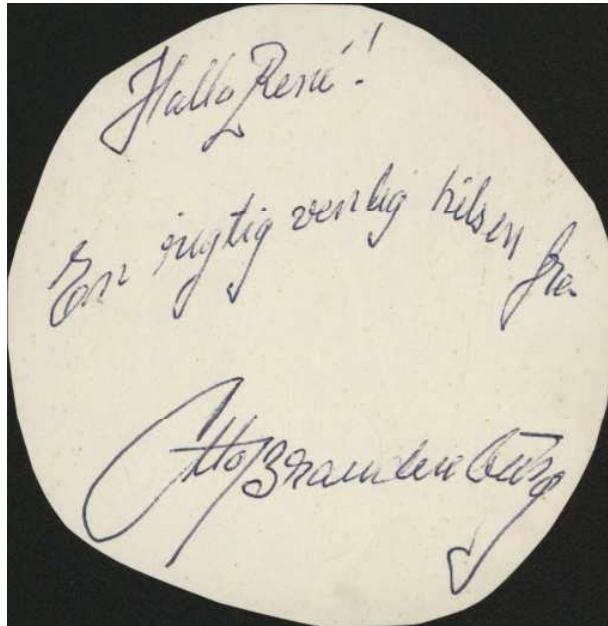 Hallo René!
En rigtig venlig hilsen fra
Otto Brandenburg